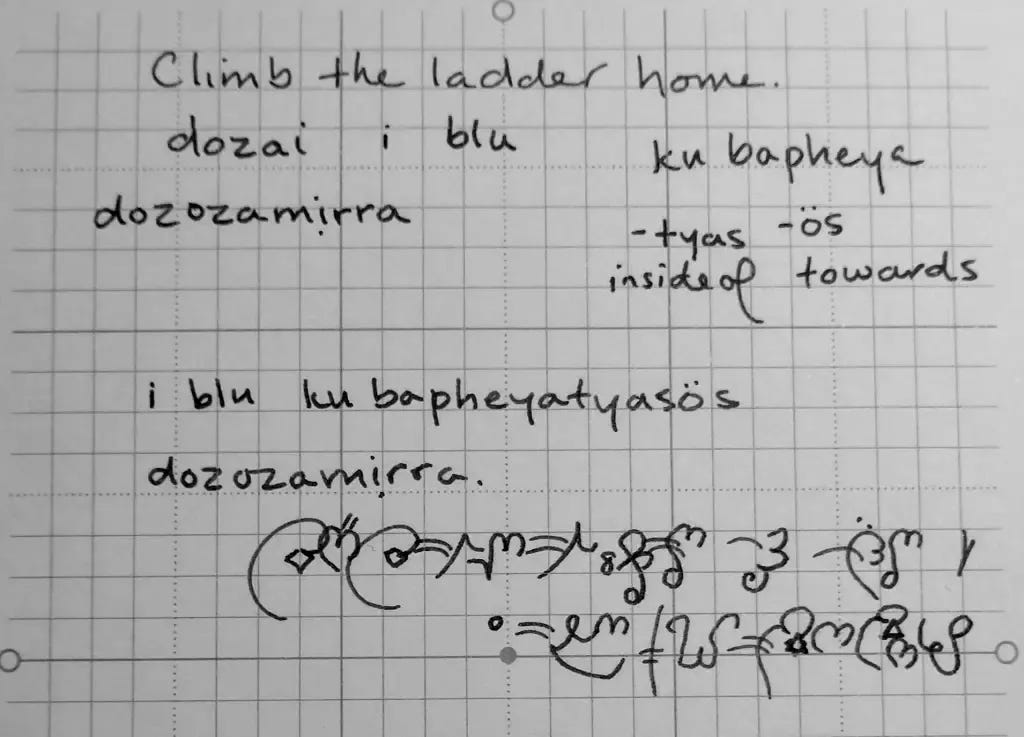 Climb the ladder home.
dozai i blu ku bapheya
dozozamịrra
-tyas -ös
inside of towards
i blu ku bapheyatyasös
dozozamịrra.